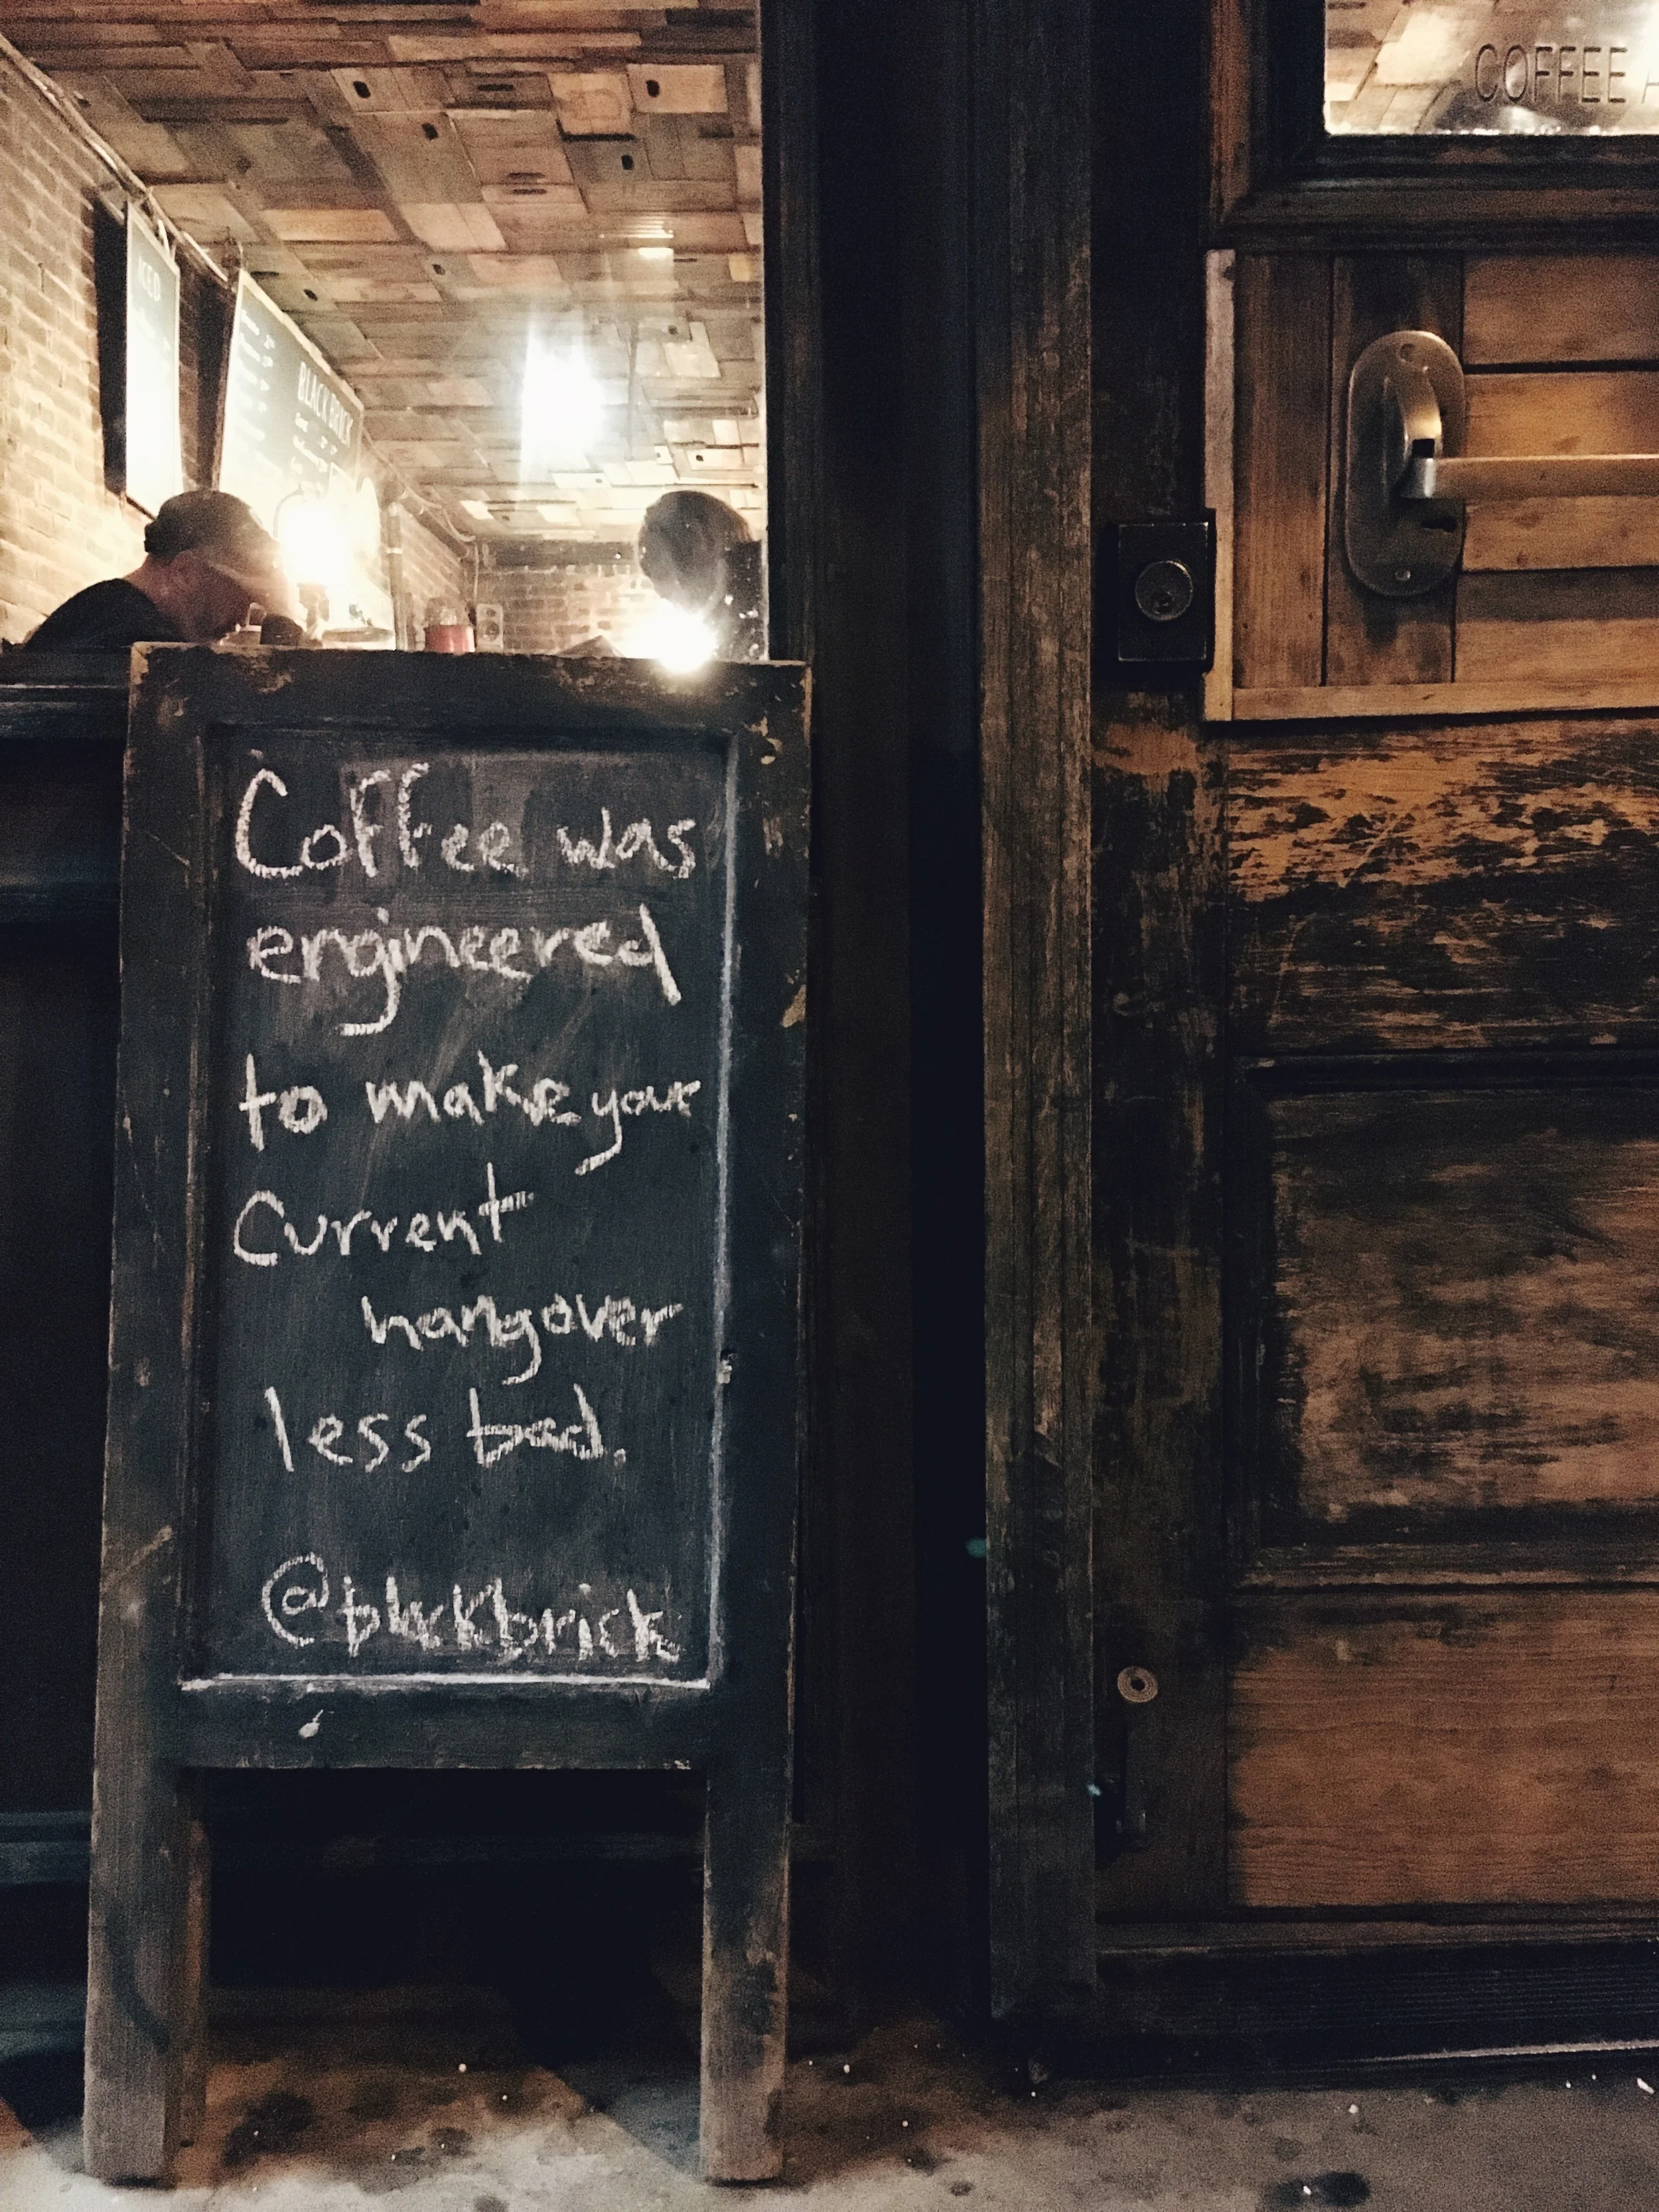 COFFEE
ICED
BLACK BRICK
Coffee was
engineered
to make your
Current
hangover
less bad.
@blackbrick